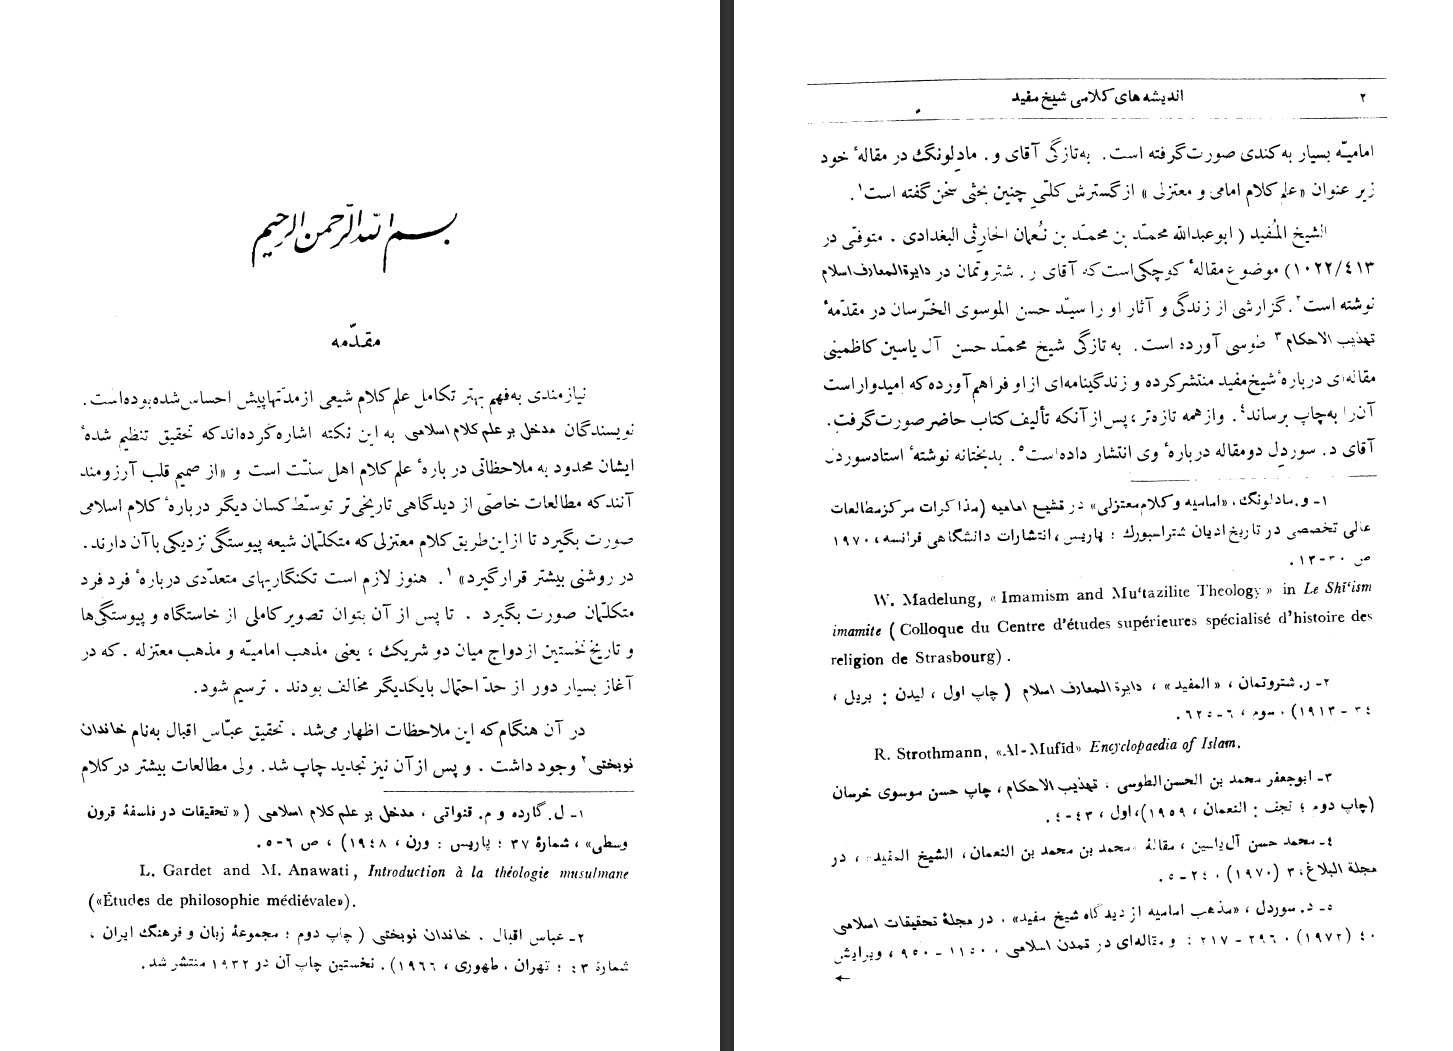 بسم الله الرحمن الرحیم
مقدّمه
نیازمندی به‌فهم بهتر تکامل علم کلام شیعی از مدّتها پیش احساس شده بوده‌است.
نویسندگان مدخل بر علم کلام اسلامی به این نکته اشاره کرده‌اند که تحقیق تنظیم شدهٔ
ایشان محدود به ملاحظاتی دربارهٔ علم کلام اهل سنّت است و «از صمیم قلب آرزومند
آنند که مطالعات خاصّی از دیدگاهی تاریخی‌تر توسّط کسان دیگر دربارهٔ کلام اسلامی
صورت بگیرد تا از این طریق کلام معتزلی که متکلّمان شیعه پیوستگی نزدیکی با آن دارند.
در روشنی بیشتر قرار گیرد» ۱. هنوز لازم است تکنگاریهای متعدّدی دربارهٔ فرد فرد
متکلّمان صورت بگیرد . تا پس از آن بتوان تصویر کاملی از خاستگاه و پیوستگی‌ها
و تاریخ نخستین ازدواج میان دو شریک ، یعنی مذهب امامیّه و مذهب معتزله . که در
آغاز بسیار دور از حدّ احتمال بایکدیگر مخالف بودند . ترسیم شود.
در آن هنگام که این ملاحظات اظهار می‌شد . تحقیق عبّاس اقبال به‌نام خاندان
نوبختی ۲ وجود داشت . و پس از آن نیز تجدید چاپ شد. ولی مطالعات بیشتر در کلام
۱- ل. گارده و م. قنواتی ، مدخل بر علم کلام اسلامی ( « تحقیقات در فلسفهٔ قرون
وسطی» ، شمارهٔ ۳۷ ؛ پاریس : ورن ، ۱۹۴۸) ، ص ۶-۵.
L. Gardet and M. Anawati, Introduction à la théologie musulmane
(«Études de philosophie médiévale»).
۲- عباس اقبال . خاندان نوبختی ( چاپ دوم ؛ مجموعهٔ زبان و فرهنگ ایران ،
شمارهٔ ۴۳ ؛ تهران ، طهوری ، ۱۹۶۶). نخستین چاپ آن در ۱۹۳۲ منتشر شد.
۲ اندیشه های کلامی شیخ مفید
امامیّه بسیار به کندی صورت گرفته است. به‌تازگی آقای و. مادلونگ در مقالهٔ خود
زیر عنوان «علم کلام امامی و معتزلی » از گسترش کلّی چنین بحثی سخن گفته است۱.
الشیخ المُفید ( ابوعبدالله محمّد بن محمّد بن نُعمان الحارثی البغدادی . متوفّی در
۱۰۲۲/۴۱۳) موضوع مقالهٔ کوچکی است که آقای ر. شتروتمان در دایرةالمعارف اسلام
نوشته است۲. گزارشی از زندگی و آثار او را سیّد حسن الموسوی الخرسان در مقدّمهٔ
تهذیب الاحکام ۳ طوسی آورده است. به تازگی شیخ محمّد حسن آل یاسین کاظمینی
مقاله‌ای دربارهٔ شیخ مفید منتشر کرده و زندگینامه‌ای از او فراهم آورده که امیدوار است
آن را به‌چاپ برساند۴. و از همه تازه‌تر ، پس از آنکه تألیف کتاب حاضر صورت گرفت.
آقای د. سوردل دو مقاله دربارهٔ وی انتشار داده‌است۵. بدبختانه نوشتهٔ استاد سوردل
۱- و. مادلونگ ، «امامیه و کلام معتزلی» در تشیع امامیه (مذاکرات مرکز مطالعات
عالی تخصصی در تاریخ ادیان شتراسبورگ ؛ پاریس ، انتشارات دانشگاهی فرانسه ، ۱۹۷۰
ص ۳۰-۱۳.
W. Madelung, « Imamism and Mu‘tazilite Theology » in Le Shī‘ism
imamite ( Colloque du Centre d'études supérieures spécialisé d'histoire des
religion de Strasbourg) .
۲- ر. شتروتمان ، « المفید » ، دایرة المعارف اسلام ( چاپ اول ، لیدن : بریل ،
۳۴ - ۱۹۱۳) . سوم ، ۶-۶۲۵.
R. Strothmann, «Al-Mufīd» Encyclopaedia of Islam.
۳- ابوجعفر محمد بن الحسن الطوسی ، تهذیب الاحکام ، چاپ حسن موسوی خرسان
(چاپ دوم ؛ نجف : النعمان ، ۱۹۵۹)، اول ، ۴۳-۴.
۴- محمد حسن آل یاسین ، مقالهٔ «محمد بن محمد بن النعمان، الشیخ المفید» ، در
مجلة البلاغ، ۳ (۱۹۷۰) ، ۲۴-۵.
۵- د. سوردل ، «مذهب امامیه از دیدگاه شیخ مفید» . در مجلهٔ تحقیقات اسلامی
۴۰ (۱۹۷۲) ، ۲۹۶ - ۲۱۷ : و مقاله‌ای در تمدن اسلامی ، ۱۱۵۰ - ۹۵۰ ، ویرایش
←